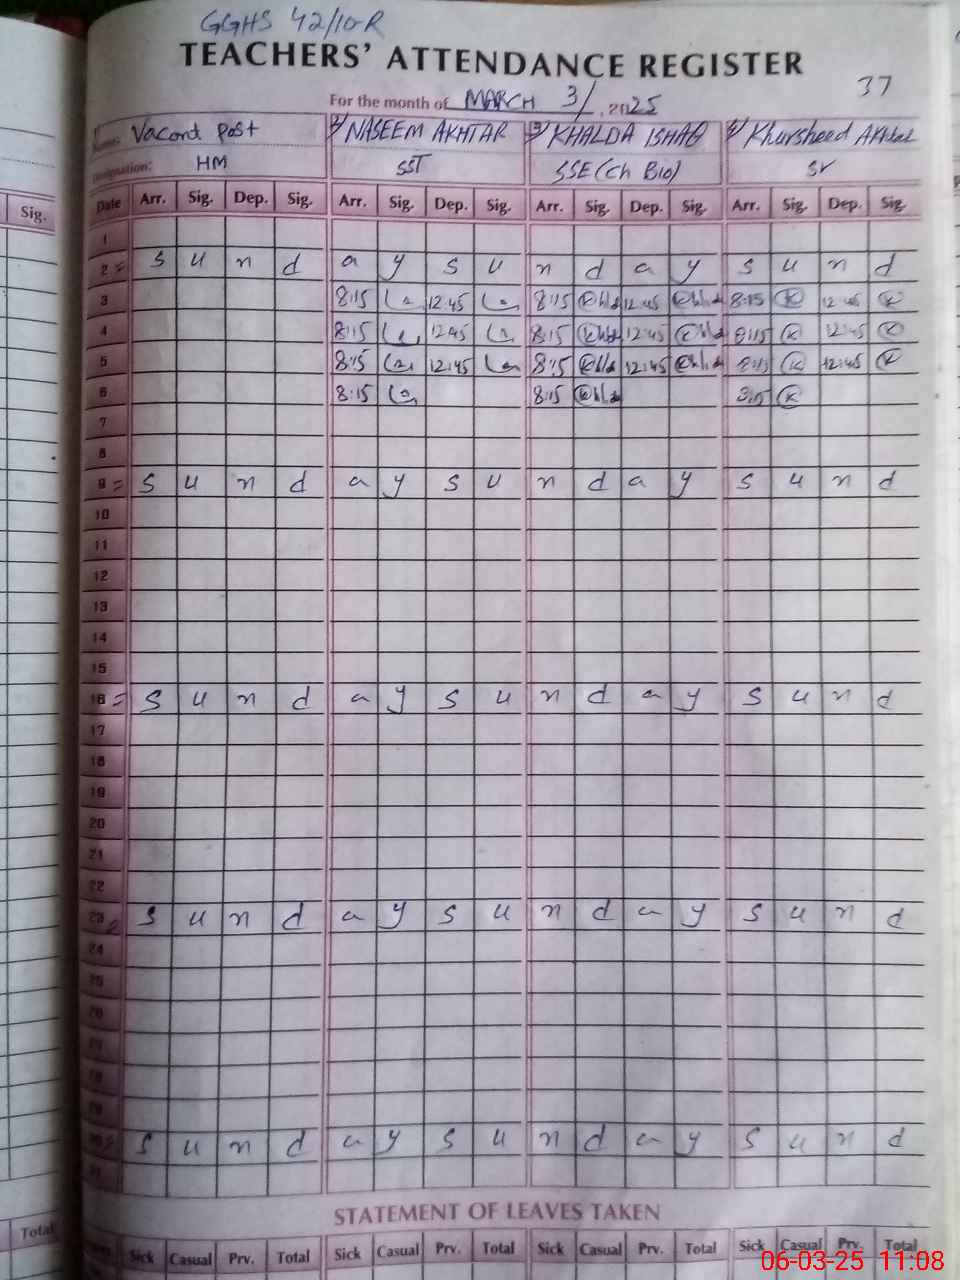 GGHS 42/10-R
TEACHERS' ATTENDANCE REGISTER
37
For the month of MARCH 3/ , 2025
Vacant Post 2/ NASEEM AKHTAR 3/ KHALDA ISHAQ 4/ Khursheed Akhtar
Designation: HM SST SSE (Ch Bio) Sr
Sig. Date Arr. Sig. Dep. Sig. Arr. Sig. Dep. Sig. Arr. Sig. Dep. Sig. Arr. Sig. Dep. Sig.
1
2 = s u n d a y s u n d a y s u n d
3 8:15 12:45 8:15 12:45 8:15 K 12:45 K
4 8:15 12:45 8:15 12:45 8:15 K 12:45 K
5 8:15 12:45 8:15 12:45 8:15 K 12:45 K
6 8:15 8:15 8:15 K
7
8
9 = s u n d a y s u n d a y s u n d
10
11
12
13
14
15
16 = s u n d a y s u n d a y s u n d
17
18
19
20
21
22
23 = s u n d a y s u n d a y s u n d
24
25
26
27
28
29
30 = s u n d a y s u n d a y s u n d
31
STATEMENT OF LEAVES TAKEN
Total Sick Casual Prv. Total Sick Casual Prv. Total Sick Casual Prv. Total Sick Casual Prv. Total
06-03-25 11:08